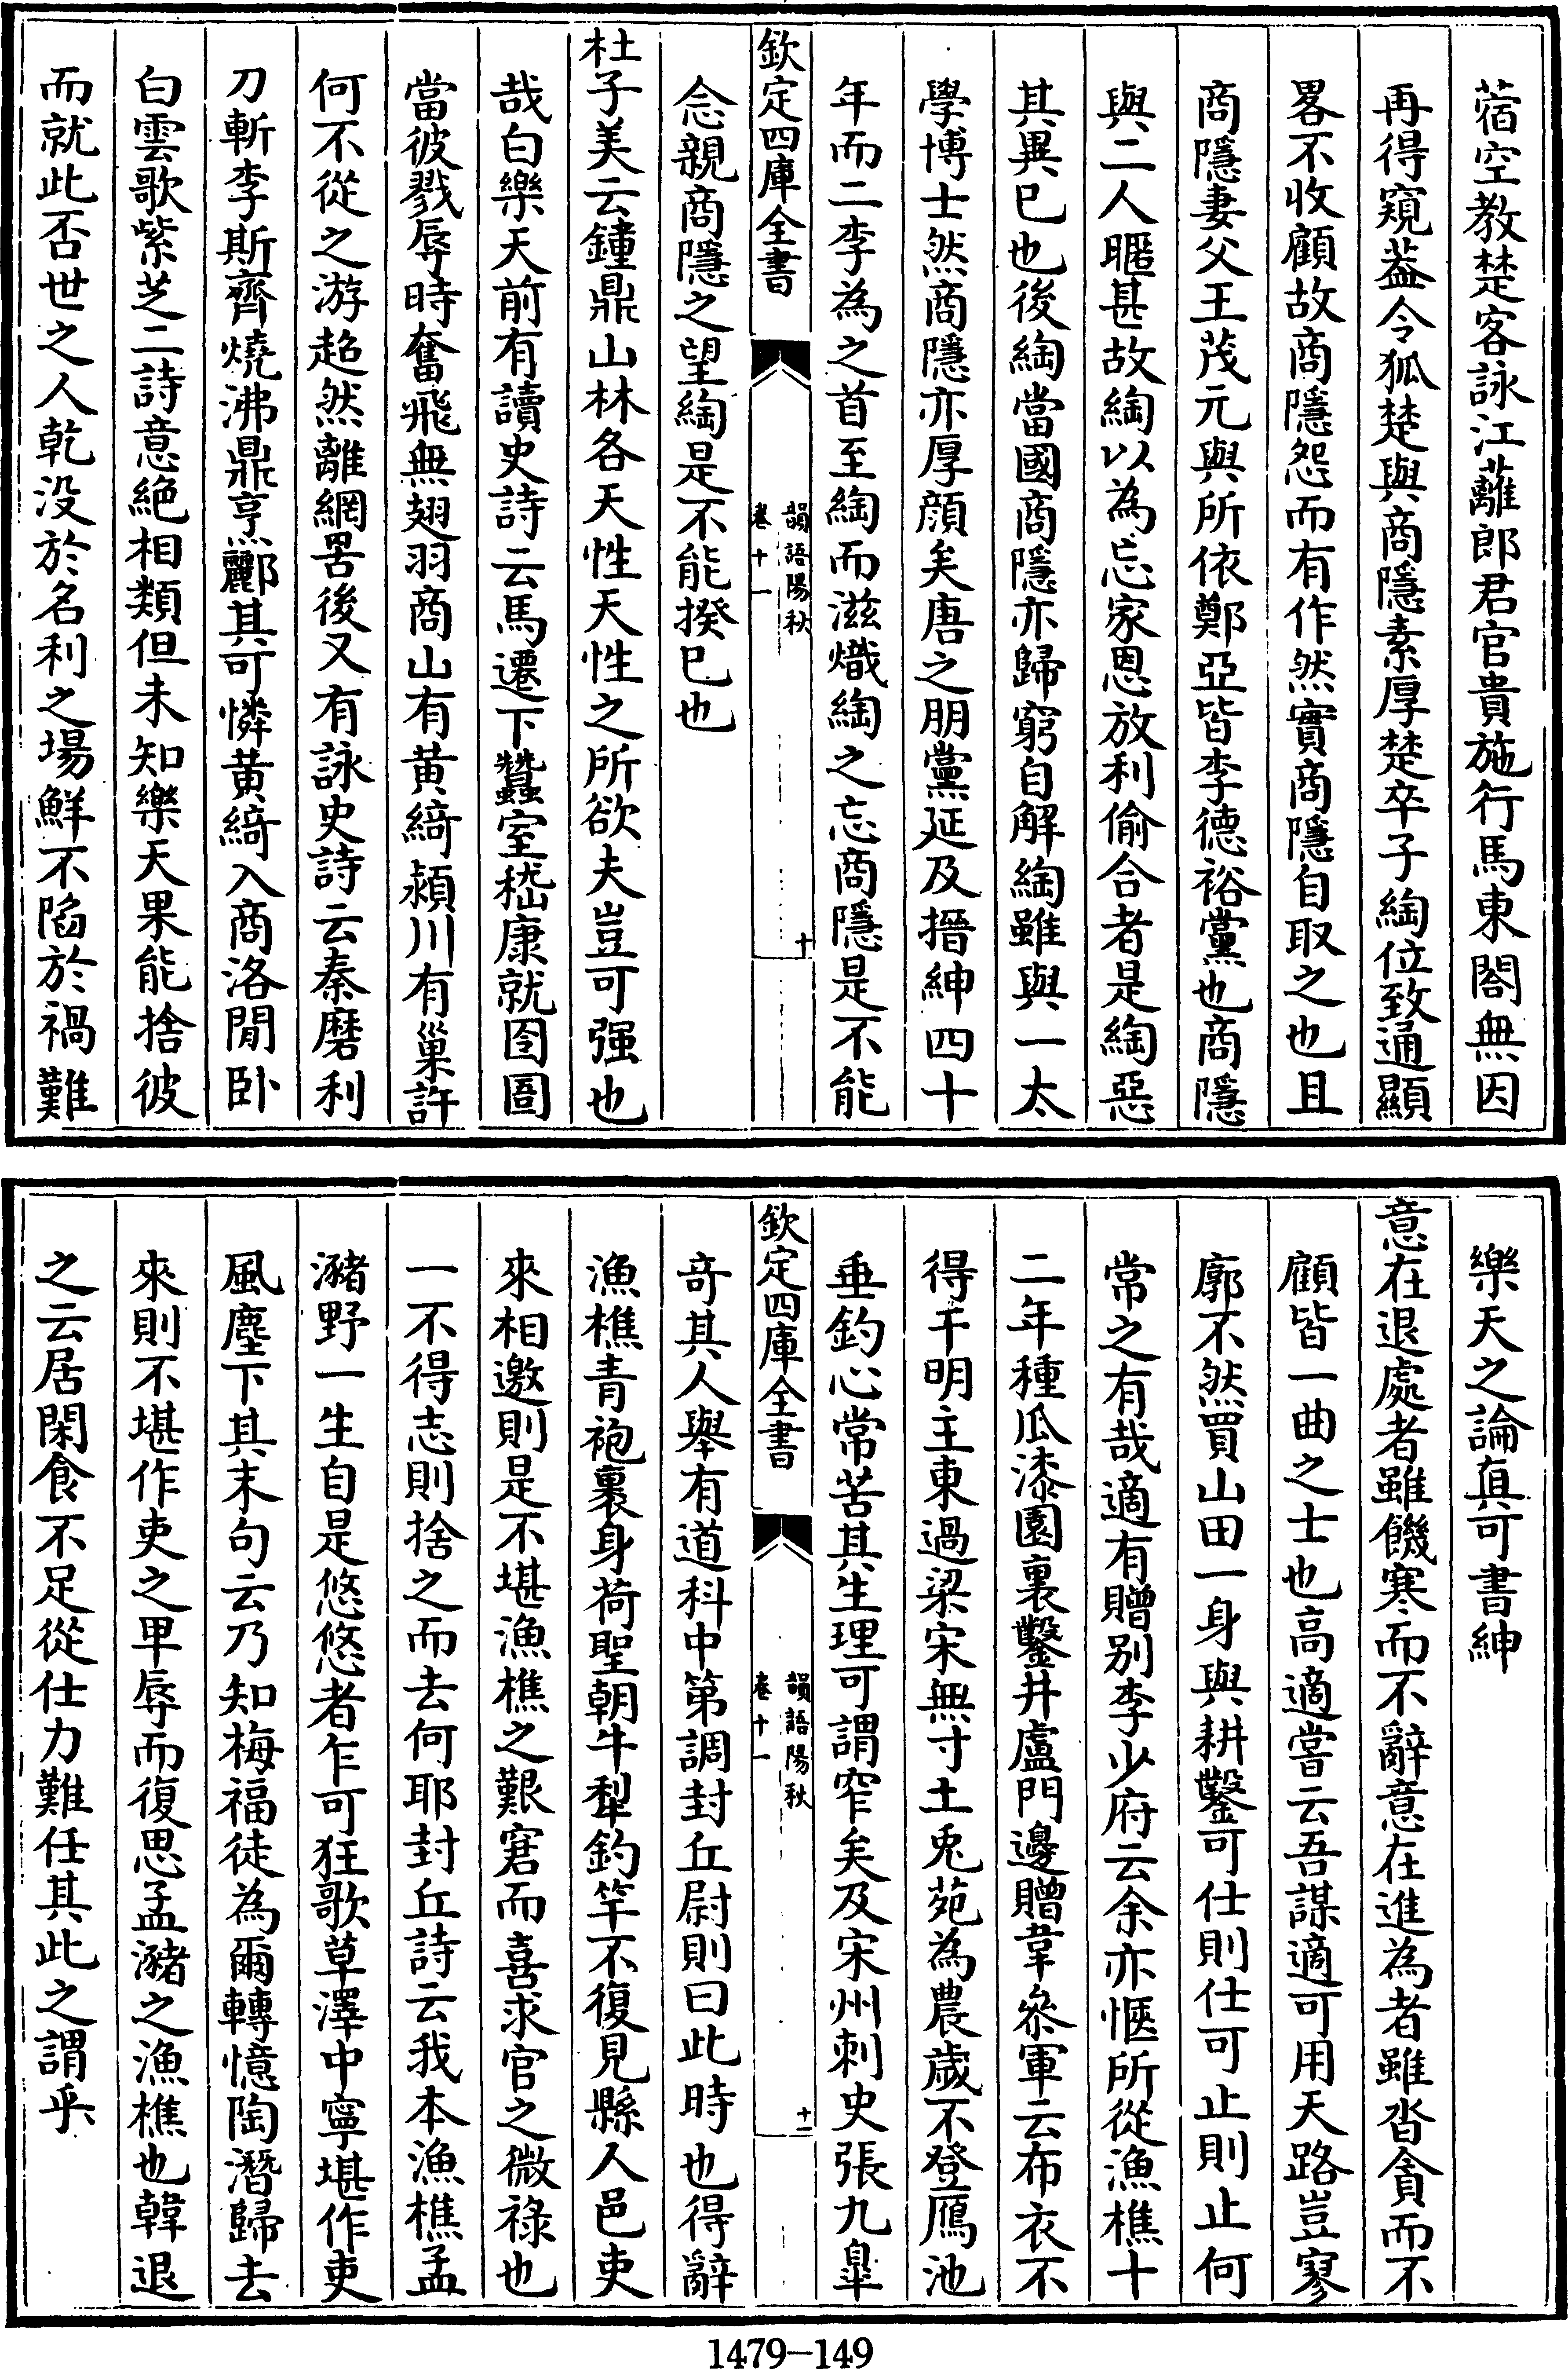 蓿空教楚客詠江蘺郎君官貴施行馬東閣無因
再得窺葢令狐楚與商隱素厚楚卒子綯位致通顯
畧不收顧故商隱怨而有作然實商隱自取之也且
商隱妻父王茂元與所依鄭亞皆李德裕黨也商隱
與二人暱甚故綯以為忘家恩放利偷合者是綯惡
其異已也後綯當國商隱亦歸窮自解綯雖與一太
學博士然商隱亦厚顔矣唐之朋黨延及搢紳四十
年而二李為之首至綯而滋熾綯之忘商隱是不能
欽定四庫全書
韻語陽秋
卷十一
十
念親商隱之望綯是不能揆已也
杜子美云鐘鼎山林各天性天性之所欲夫豈可强也
哉白樂天前有讀史詩云馬遷下蠶室嵇康就囹圄
當彼戮辱時奮飛無翅羽商山有黄綺潁川有巢許
何不從之游超然離網罟後又有詠史詩云秦磨利
刀斬李斯齊燒沸鼎烹酈其可憐黄綺入商洛閒卧
白雲歌紫芝二詩意絶相類但未知樂天果能捨彼
而就此否世之人乾没於名利之場鮮不陷於禍難
樂天之論真可書紳
意在退處者雖饑寒而不辭意在進為者雖沓貪而不
顧皆一曲之士也高適嘗云吾謀適可用天路豈寥
廓不然買山田一身與耕鑿可仕則仕可止則止何
常之有哉適有贈别李少府云余亦愜所從漁樵十
二年種瓜漆園裏鑿井盧門邊贈韋叅軍云布衣不
得干明主東過梁宋無寸土兎苑為農歲不登鴈池
垂釣心常苦其生理可謂窄矣及宋州刺史張九臯
欽定四庫全書
韻語陽秋
卷十一
十一
奇其人舉有道科中第調封丘尉則曰此時也得辭
漁樵青袍裏身荷聖朝牛犁釣竿不復見縣人邑吏
來相邀則是不堪漁樵之艱窘而喜求官之微禄也
一不得志則捨之而去何耶封丘詩云我本漁樵孟
瀦野一生自是悠悠者乍可狂歌草澤中寧堪作吏
風塵下其末句云乃知梅福徒為爾轉憶陶潛歸去
來則不堪作吏之卑辱而復思孟瀦之漁樵也韓退
之云居閑食不足從仕力難任其此之謂乎
1479-149